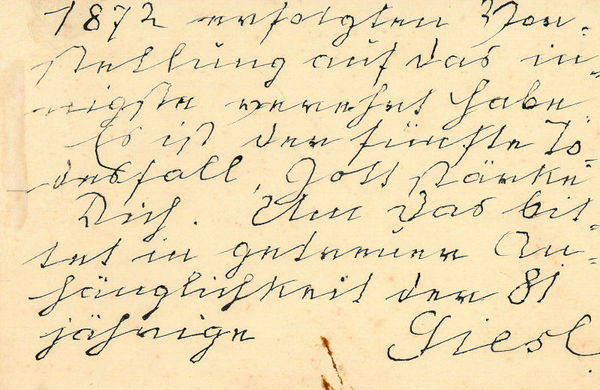 1872 erfolgten Vor-
stellung auf das in-
nigste verehrt habe
Es ist der fünfte To-
desfall, Gott stärke
Dich. Um das bit-
tet in getreuer An-
hänglichkeit der 81
jährige Giesl.